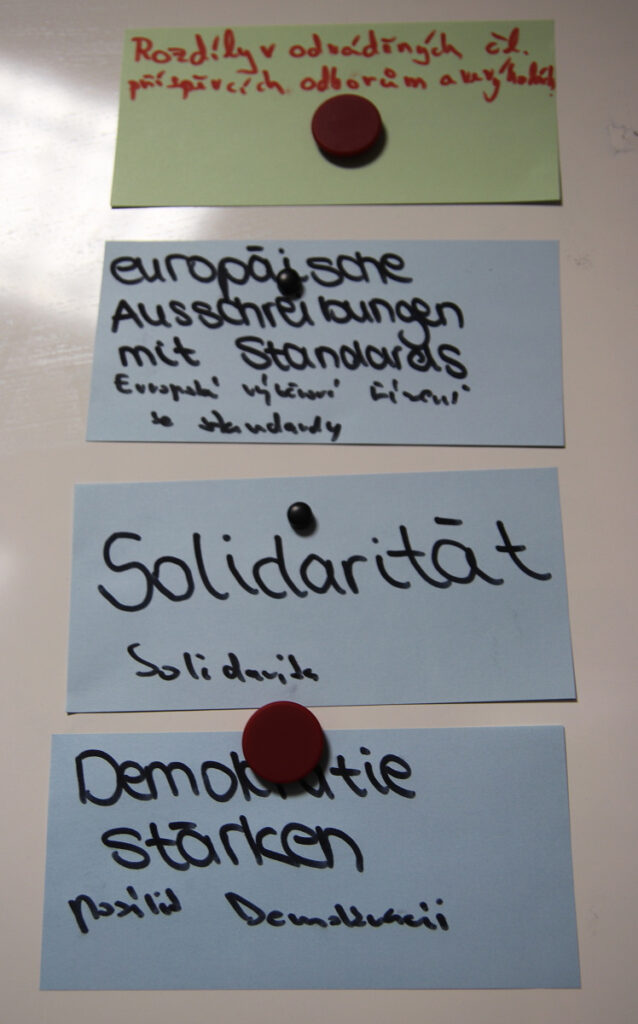 Rozdíly v odváděných čl.
příspěvcích odborům a ve výhodách
europäische
Ausschreibungen
mit Standards
Evropská výběrová řízení
se standardy
Solidarität
Solidarita
Demokratie
stärken
posílit Demokracii